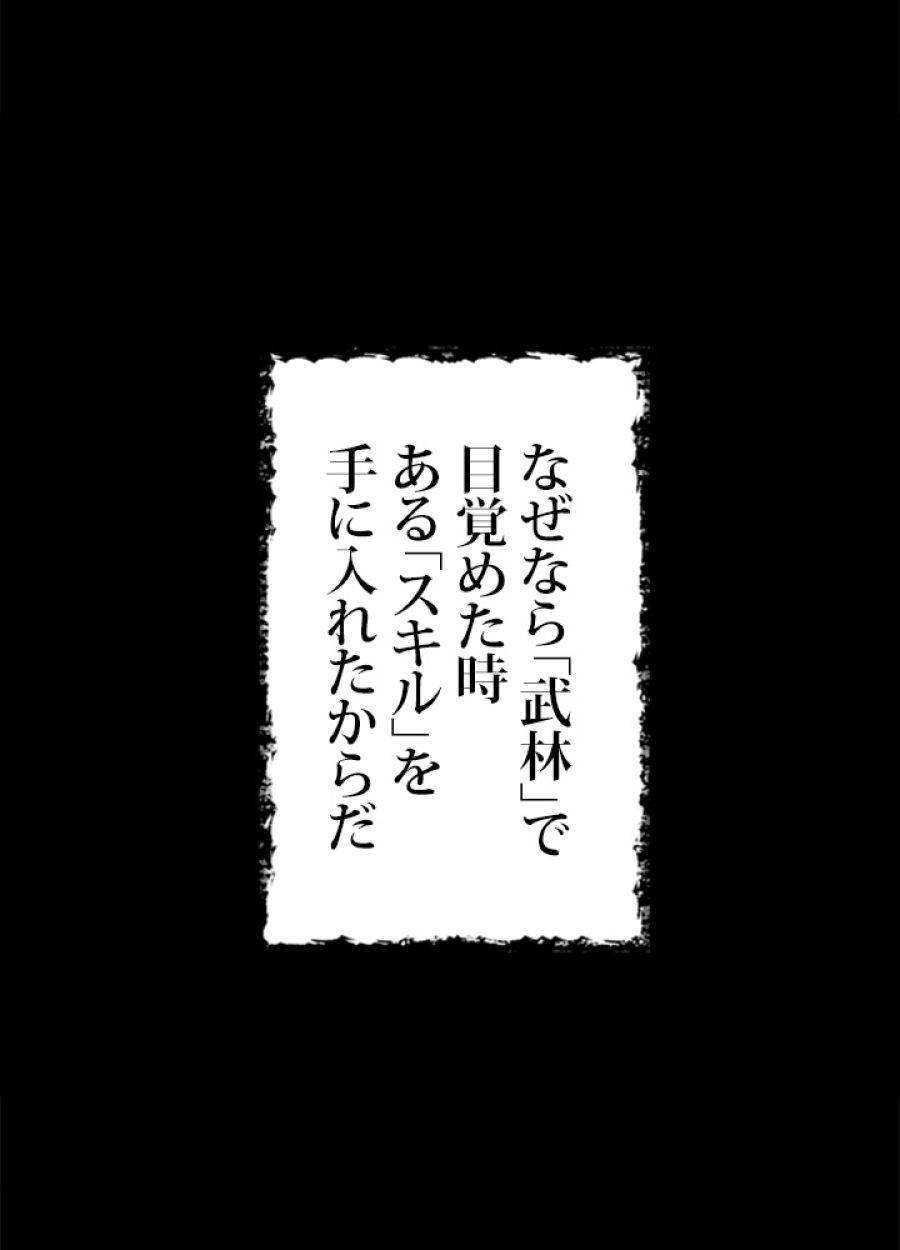 なぜなら「武林」で
目覚めた時
ある「スキル」を
手に入れたからだ